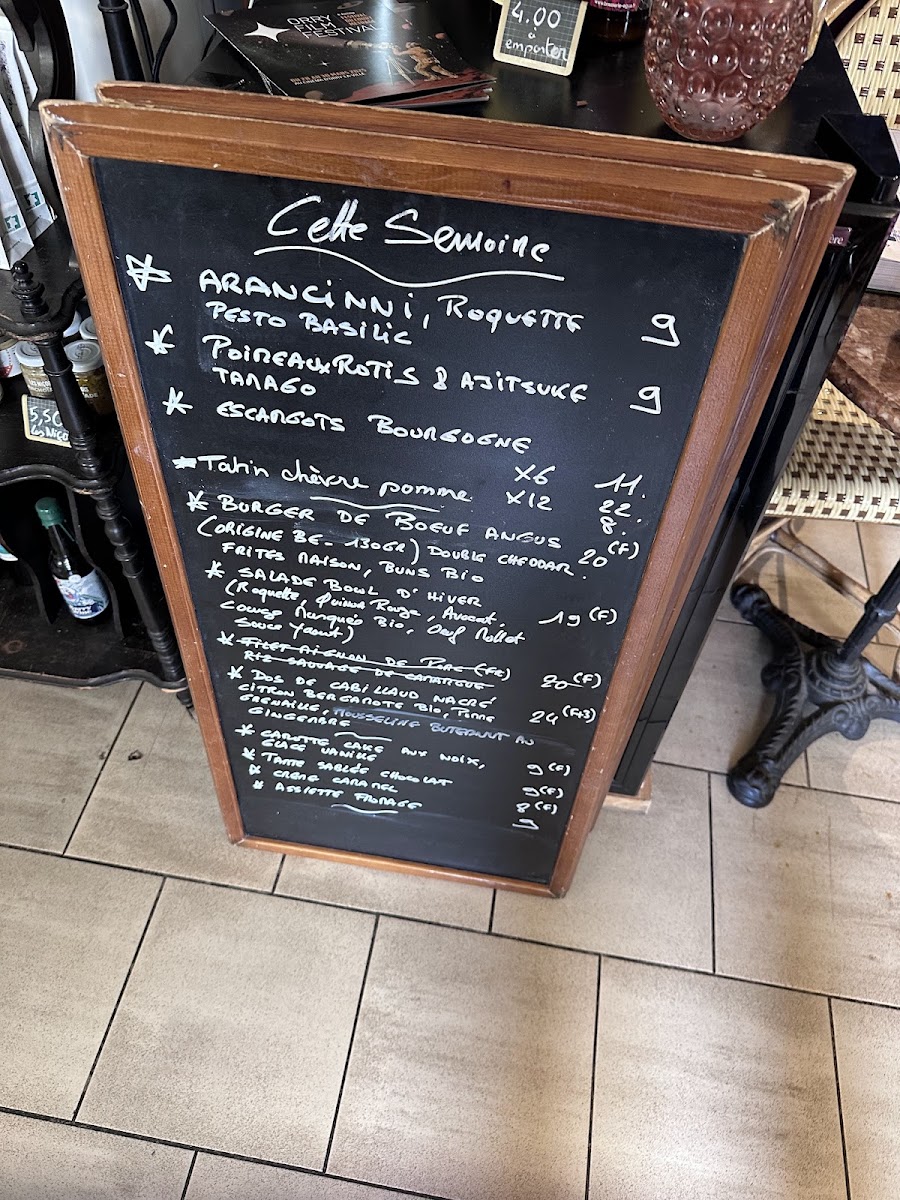 ORRY
FILM
FESTIVAL
4.00
à
emporter
Cette Semaine
ARANCINNI, ROQUETTE
PESTO BASILIC 9
POIREAUX ROTIS & AJITSUKE
TAMAGO 9
ESCARGOTS BOURGOGNE
X6 11.
X12 22.
Tatin chèvre pomme 8.
BURGER DE BOEUF ANGUS
(ORIGINE BE - 130GR) DOUBLE CHEDDAR. 20 (F)
FRITES MAISON, BUNS BIO
SALADE BOWL D'HIVER
(Roquette, Quinoa Rouge, Avocat, 19 (F)
Courge Marquée Bio, Oeuf Mollet
Sauce Yaourt)
FILET MIGNON DE PORC (FR)
RIZ SAUVAGE DE CAMARGUE 20 (F)
DOS DE CABILLAUD NACRÉ
CITRON BERGAMOTE BIO, POMME 24 (F+3)
GRENAILLE, MOUSSELINE BUTERNUT AU
GINGEMBRE
CAROTTE CAKE AUX NOIX,
GLACE VANILLE 9 (F)
TARTE SABLÉE CHOCOLAT 9 (F)
CRÈME CARAMEL 8 (F)
ASSIETTE FROMAGE 9
5,50